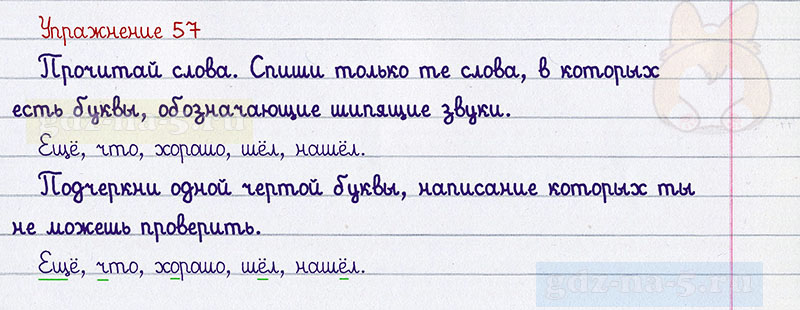 Упражнение 57
Прочитай слова. Спиши только те слова, в которых
есть буквы, обозначающие шипящие звуки.
gdz-na-5.ru
Ещё, что, хорошо, шёл, нашёл.
Подчеркни одной чертой буквы, написание которых ты
не можешь проверить.
Ещё, что, хорошо, шёл, нашёл.
gdz-na-5.ru